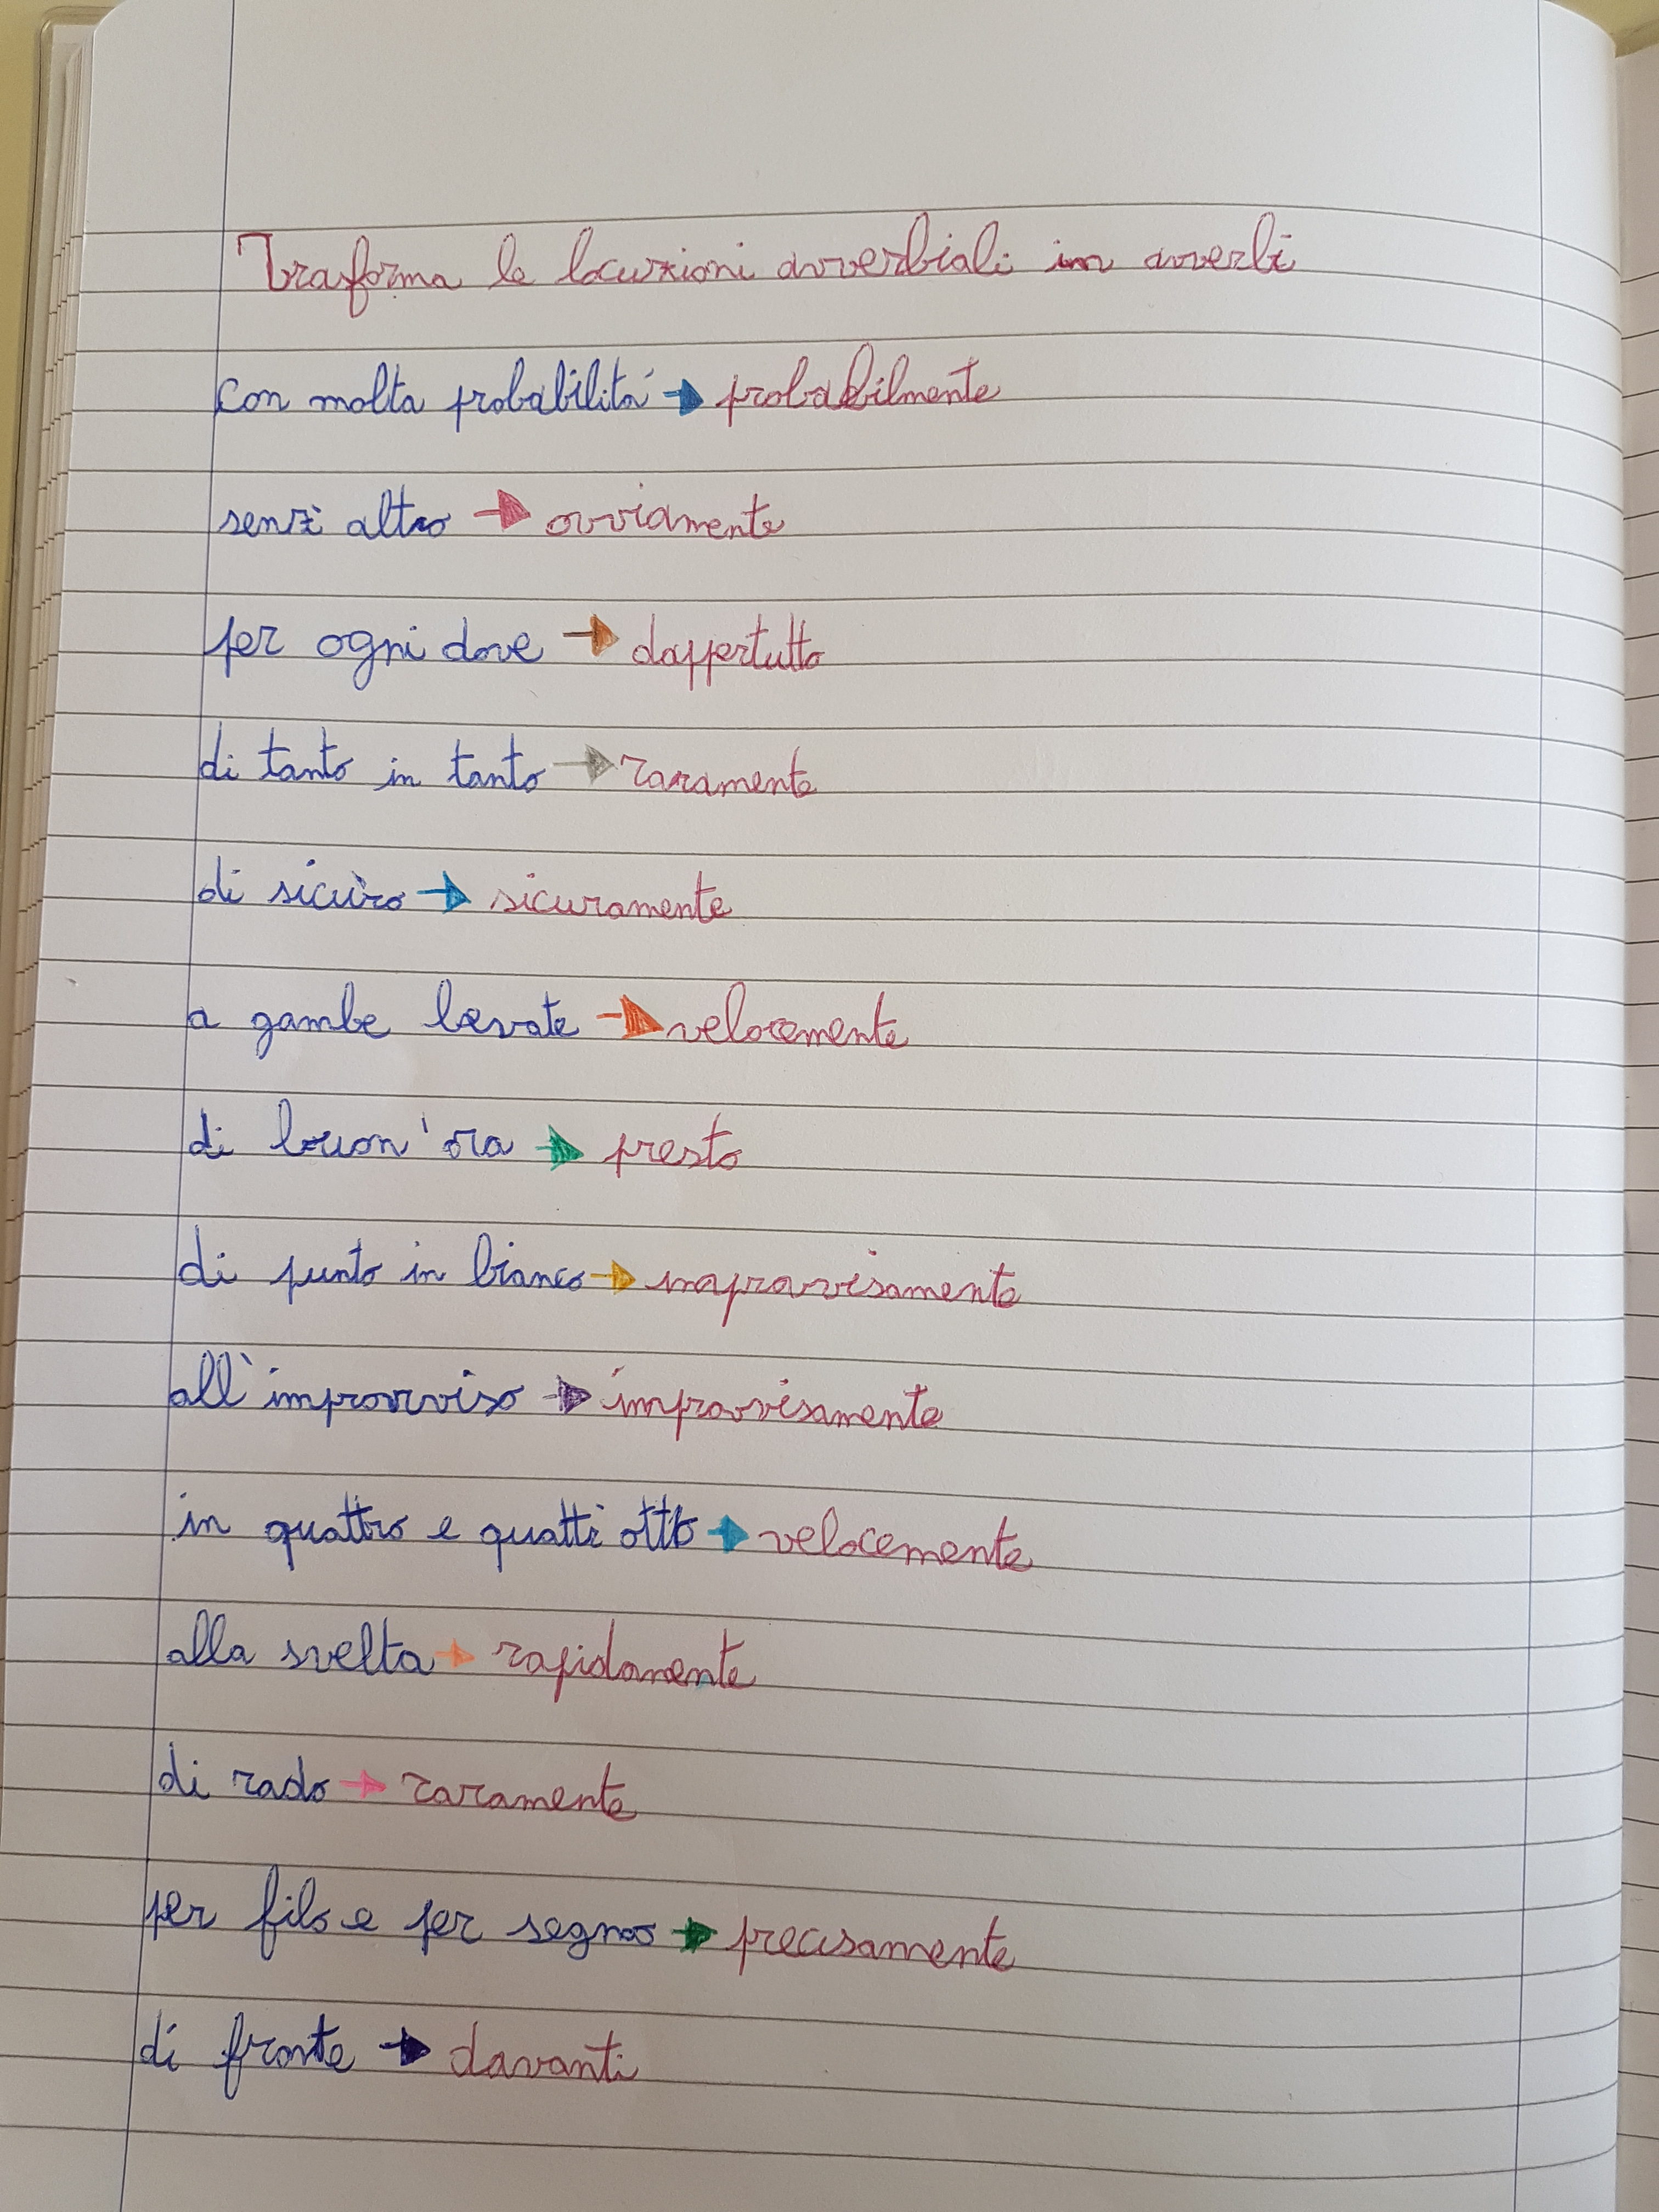 Traforma le locuzioni avverbiali in avverbi
con molta probabilitá → probabilmente
senz'altro → ovviamente
per ogni dove → dappertutto
di tanto in tanto → raramente
di sicuro → sicuramente
a gambe levate → velocemente
di buon'ora → presto
di punto in bianco → improvvisamente
all'improvviso → improvvisamente
in quattro e quattr'otto → velocemente
alla svelta → rapidamente
di rado → raramente
per filo e per segno → precisamente
di fronte → davanti